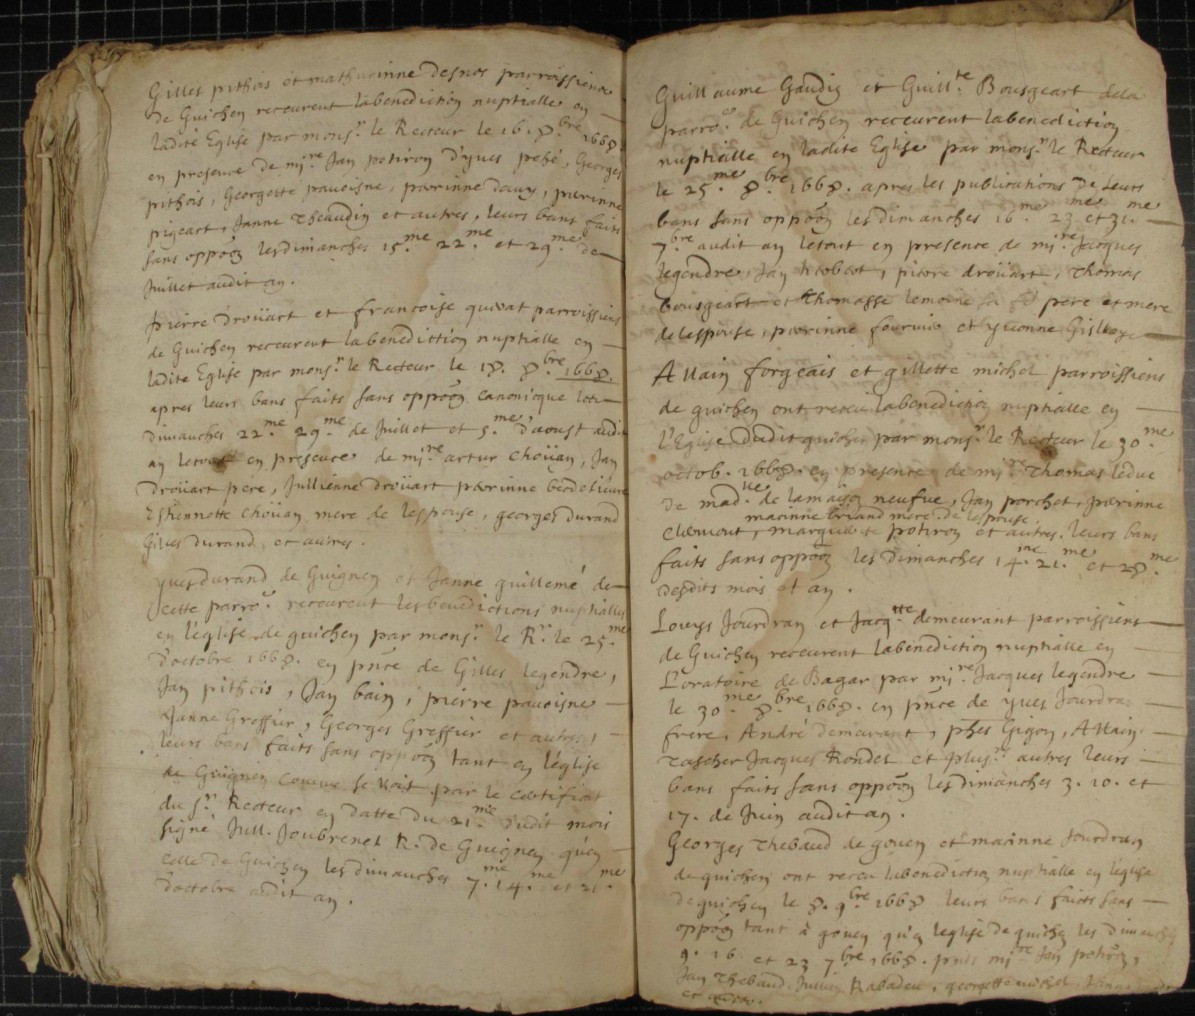 Gilles pithois et mathurinne desnos parroissiens
de Guichen receurent la benediction nuptialle en
ladite Eglise par mons.r le Recteur le 16. 8.bre 1668.
en presence de mi.re Jan potiron d'yves pithé, Georges
pithois, Georgette pavoisne, perrinne davy, perrinne
pigeart, Janne Theaudin et autres, leurs bans faits
sans oppoõn les dimanches 15.me 22.me et 29.me de
Juillet audit an.
pierre droüart et francoise quivat parroissiens
de Guichen receurent la benediction nuptialle en
ladite Eglise par mons.r le Recteur le 18. 8.bre 1668.
apres leurs bans faits sans oppoõn canonicque les
dimanches 22.me 29.me de Juillet et 5.me d'aoust audit
an le tout en presence de mi.re artur choüan, Jan
droüart pere, Jullienne droüart perrinne
Estiennette choüan mere de l'espouse, georges durand
Gilles durand et autres.
yves durand de Guignen et Janne guillemé de
cette parro.e receurent les benedictions nuptialles
en l'eglise de guichen par mons.r le R.r le 25.me
d'octobre 1668. en pñce de Gilles legendre,
Jan pithois, Jan bain, pierre pavoisne
Janne Greffier, Georges Greffier et autres,
leurs bans faits sans oppoõn tant en l'eglise
de Guignen comme se voit par le certificat
du s.r Recteur en datte du 21.me dudit mois
signé Jull. Joubrenet R. de Guignen qu'en
celle de Guichen les dimanches 7.me 14.me et 21.me
d'octobre audit an.
Guillaume Gaudin et Guill.te Bousgeart de la
parro.e de Guichen receurent la benediction
nuptialle en ladite Eglise par mons.r le Recteur
le 25.me 8.bre 1668. apres les publications de leurs
bans sans oppoõn les dimanches 16.me 23.me et 31.me
7.bre audit an le tout en presence de mi.re Jacques
legendre, Jan, pierre droüart, Thomas
bousgeart et Thomasse lemoine pere et mere
de lespouse, perrinne et yvonne
Allain forgeais et gillette michel parroissiens
de guichen ont receu la benediction nuptialle en
l'Eglise dudit guichen par mons.r le Recteur le 30.me
octob. 1668. en presence de mi.re Thomas leduc
de mad.lle de la maison neufve, Jan porchet, perrinne
marinne briand mere de lespouse
clement, marguerite potiron et autres. leurs bans
faits sans oppoõn les dimanches 14.me 21.me et 28.me
desdits mois et an.
Louys Jourdran et Jacq.tte demeurant parroissient
de Guichen receurent la benediction nuptialle en
L'oratoire de Bagar par mi.re Jacques legendre
le 30.me 8.bre 1668. en pñce de yves Jourdran
frere, André demeurant, phes Gigon, Allain
Tascher Jacques Rondel et plus.rs autres leurs
bans faits sans oppoõn les dimanches 3. 10. et
17. de Juin audit an.
Georges Thebaud de goven et marinne Jourdran
de guichen ont receu la benediction nuptialle en l'eglise
de guichen le 8. 9.bre 1668 leurs bans faicts sans
oppoõn tant à goven qu'en leglise de guichen les dimanches
9. 16. et 23 7.bre 1668. pnts mi.re Jan potiron,
Jan Thebaud, Jullien Rabadeu, georgette michel, Janne
et autres.